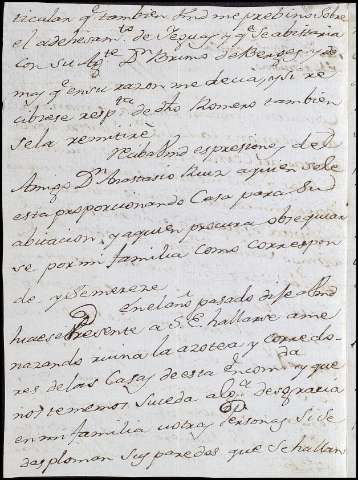 ticular q.e tambien Vmd me prebino sobre
el adehesam.to de Yeguas y q.e se abistaria
con su Ag.te D.n Bruno de
mas q.e en su razon me decia, y si re
cibiese resp.ta de dho Romero tambien
se la remitire
Reciba Vmd espresiones del
Amigo D.n Anastasio a quien se le
esta proporcionando Casa para su
abitacion, y aquien procura obsequiar
se por mi familia como correspon
de y se merece
En el año pasado dije a Vmd
hiciese presente a S. E. hallarse ame
nazando ruina la azotea y corredo
res de las Casas de esta Encom.da y que
nos tememos suceda alg.a desgracia
en mi familia u otras personas si se
desploman sus paredes que se hallan